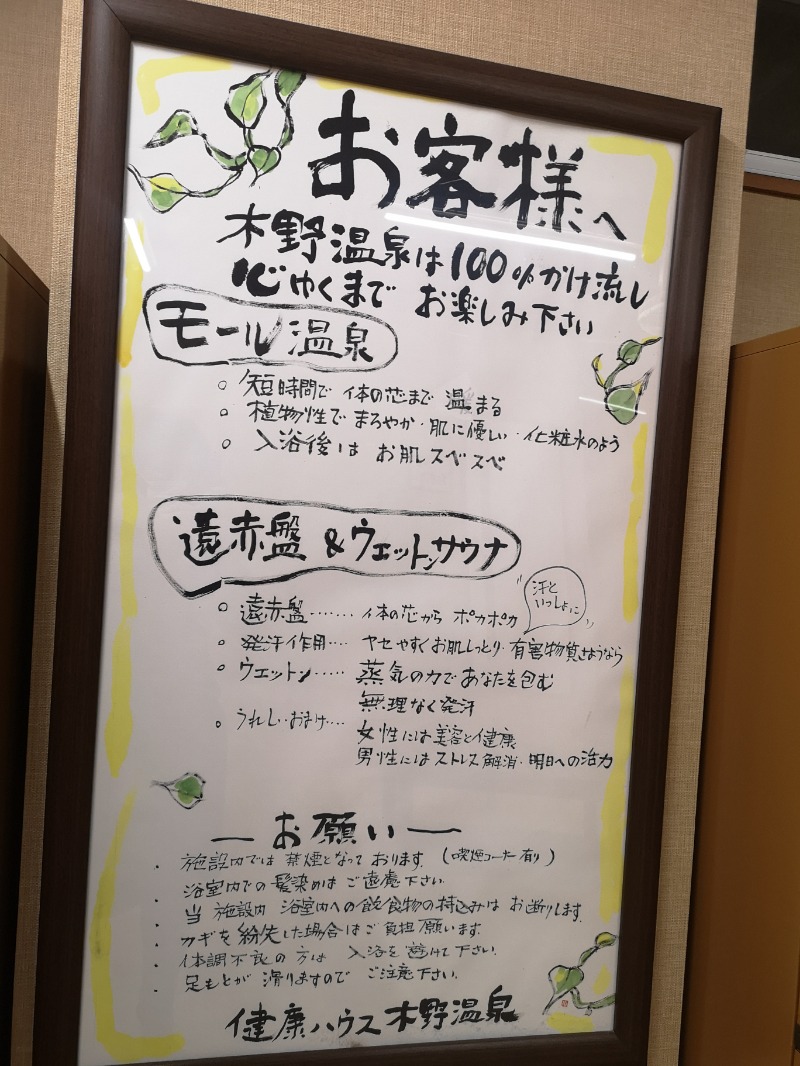 お客様へ
木野温泉は100%かけ流し
心ゆくまで お楽しみ下さい
モール温泉
○ 短時間で 体の芯まで 温まる
○ 植物性で まろやか・肌に優しい・化粧水のよう
○ 入浴後は お肌スベスベ
遠赤盤 & ウェットサウナ
汗と
いっしょに
○ 遠赤盤……体の芯から ポカポカ
○ 発汗作用…ヤセやすくお肌しっとり・有害物質さようなら
○ ウエットン……蒸気の力であなたを包む
無理なく発汗
○ うれしいおまけ…女性には美容と健康
男性にはストレス解消・明日への活力
―お願い―
・施設内では禁煙となっております。(喫煙コーナー有り)
・浴室内での髪染めはご遠慮下さい。
・当施設内 浴室内への飲食物の持込みは お断りします。
・カギを紛失した場合はご負担願います。
・体調不良の方は 入浴を避けて下さい。
・足もとが滑りますので ご注意下さい。
健康ハウス木野温泉